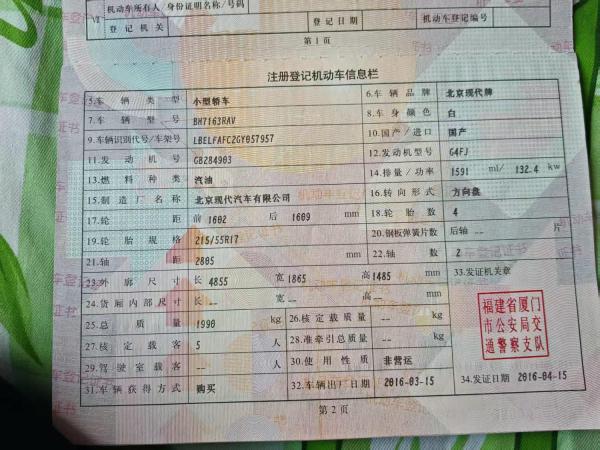 机动车所有人/身份证明名称/号码
Ⅵ 登记机关 登记日期 机动车登记编号
第1页
注册登记机动车信息栏
5.车辆类型 小型轿车 6.车辆品牌 北京现代牌
7.车辆型号 BH7163RAV 8.车身颜色 白
9.车辆识别代号/车架号 LBELFAFC2GY057957 10.国产/进口 国产
11.发动机号 GB284903 12.发动机型号 G4FJ
13.燃料种类 汽油 14.排量/功率 1591 ml/ 132.4 kw
15.制造厂名称 北京现代汽车有限公司 16.转向形式 方向盘
17.轮距 前 1602 后 1609 mm 18.轮胎数 4
19.轮胎规格 215/55R17 20.钢板弹簧片数 后轴 -- 片
21.轴距 2805 mm 22.轴数 2
23.外廓尺寸 长 4855 宽 1865 高 1485 mm 33.发证机关章
24.货厢内部尺寸 长 -- 宽 -- 高 -- mm
25.总质量 1990 kg 26.核定载质量 -- kg
27.核定载客 5 人 28.准牵引总质量 -- kg
29.驾驶室载客 -- 人 30.使用性质 非营运
31.车辆获得方式 购买 32.车辆出厂日期 2016-03-15 34.发证日期 2016-04-15
福建省厦门
市公安局交
通警察支队
第2页